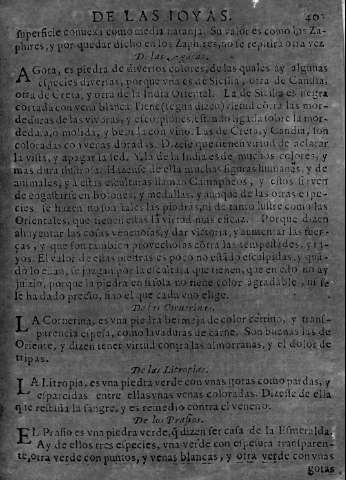 DE LAS JOYAS. 40
superficie conuexa como media naranja. Su valor es como los Za-
phires, y por quedar dicho en los Zaphires, no se repitira otra vez
De las Agatas.
AGata, es piedra de diuersos colores, de las quales ay algunas
especies diuersas, porque vna es de Sicilia, otra de Candia,
otra de Creta, y otra de la India Oriental. La de Sicilia es negra
cortada con vena blanca Tiene (segun dizen) virtud cõtra las mor-
deduras de las viuoras, y escorpiones, estando ligada sobre la mor-
dedura, o molida, y beuida con vino. Las de Creta, y Candia, son
coloradas con venas doradas. Dizese que tienen virtud de aclarar
la vista, y apagar la sed. Y la de la India es de muchos colores, y
mas dura que
ella muchas figuras humanas, y de
animales, y a estas esculturas llaman Camapheos, y estos siruen
de engastarse en botones, y medallas, y aunque de las otras espe-
cies, se hazen no son tales las piedras, ni de tanto lustre como las
Orientales, que tienen estas la virtud mas eficaz. Porque dizen
ahuyentar las cosas venenosas, y dar victoria, y aumentar las fuer-
ças, y que son tambien prouechosos cõtra las tempestades, y ra-
yos. El valor de estas piedras es poco no estãdo esculpidas, y quã-
do lo estan, se juzgan por la escultura que tienen, que en esto no ay
juizio, porque la piedra en si sola no tiene color agradable, ni se
le ha dado precio, sino el que cada vno elige.
De las Cornerinas.
LA Cornerina, es vna piedra bermeja de color cetrino, y transf-
parencia espesa, como lauaduras de carne. Son buenas las de
Oriente, y dizen tener virtud contra las almorranas, y el dolor de
tripas.
De las Litropias.
LA Litropia, es vna piedra verde con vnas gotas como pardas, y
esparcidas entre ellas vnas venas coloradas. Dizese de ella
que restaña la sangre, y es remedio contra el veneno.
De los Prasios.
EL Prasio es vna piedra verde, q̃ dizen ser casa de la Esmeralda.
Ay de ellos tres especies, vna verde con espesura transparen-
te, otra verde con puntos, y venas blancas, y otra verde con vnas
gotas